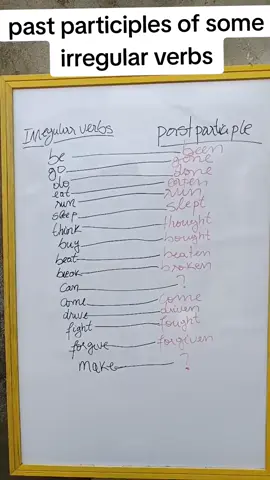 past participles of some
irregular verbs
Irregular verbs past participle
be been
go gone
do done
eat eaten
run run
sleep slept
think thought
buy bought
beat beaten
break broken
can ?
come come
drive driven
fight fought
forgive forgiven
make ?